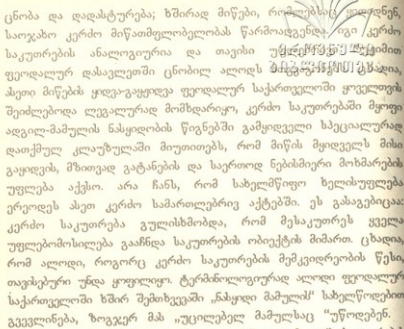 ცნობა და დადასტურება; ხშირად მიწები, რომლებსაც ყიდდნენ,
საოჯახო კერძო მიწათმფლობელობას წარმოადგენდა. იგი კერძო
საკუთრების ანალოგიურია და თავისი
ფეოდალურ დასავლეთში ცნობილ ალოდს
ასეთი მიწების ყიდვა-გაყიდვა ფეოდალურ საქართველოში ყოველთვის
შეიძლებოდა ლეგალურად მომხდარიყო, კერძო საკუთრებაში მყოფი
ადგილ-მამულის ნასყიდობის წიგნებში გამყიდველი სპეციალურად
დათქმულ კლაუზულაში მიუთითებს, რომ მიწის მყიდველს მისი
გაყიდვის, მზითვად გატანების და საერთოდ ნებისმიერი მოხმარების
უფლება აქვსო. არა ჩანს, რომ სახელმწიფო ხელისუფლება
ერეოდეს ასეთ კერძო სამართლებრივ აქტებში. ეს გასაგებიცაა:
კერძო საკუთრება გულისხმობდა, რომ მესაკუთრეს ყველა
უფლებამოსილება გააჩნდა საკუთრების ობიექტის მიმართ. ცხადია,
რომ ალოდი, როგორც კერძო საკუთრების მემკვიდრეობის წესი,
თავისებური უნდა ყოფილიყო. ტერმინოლოგიურად ალოდი ფეოდალურ
საქართველოში ხშირ შემთხვევაში „ნასყიდი მამულის" სახელწოდებით
გვევლინება, ზოგჯერ მას „უცილებელ მამულსაც "უწოდებენ.